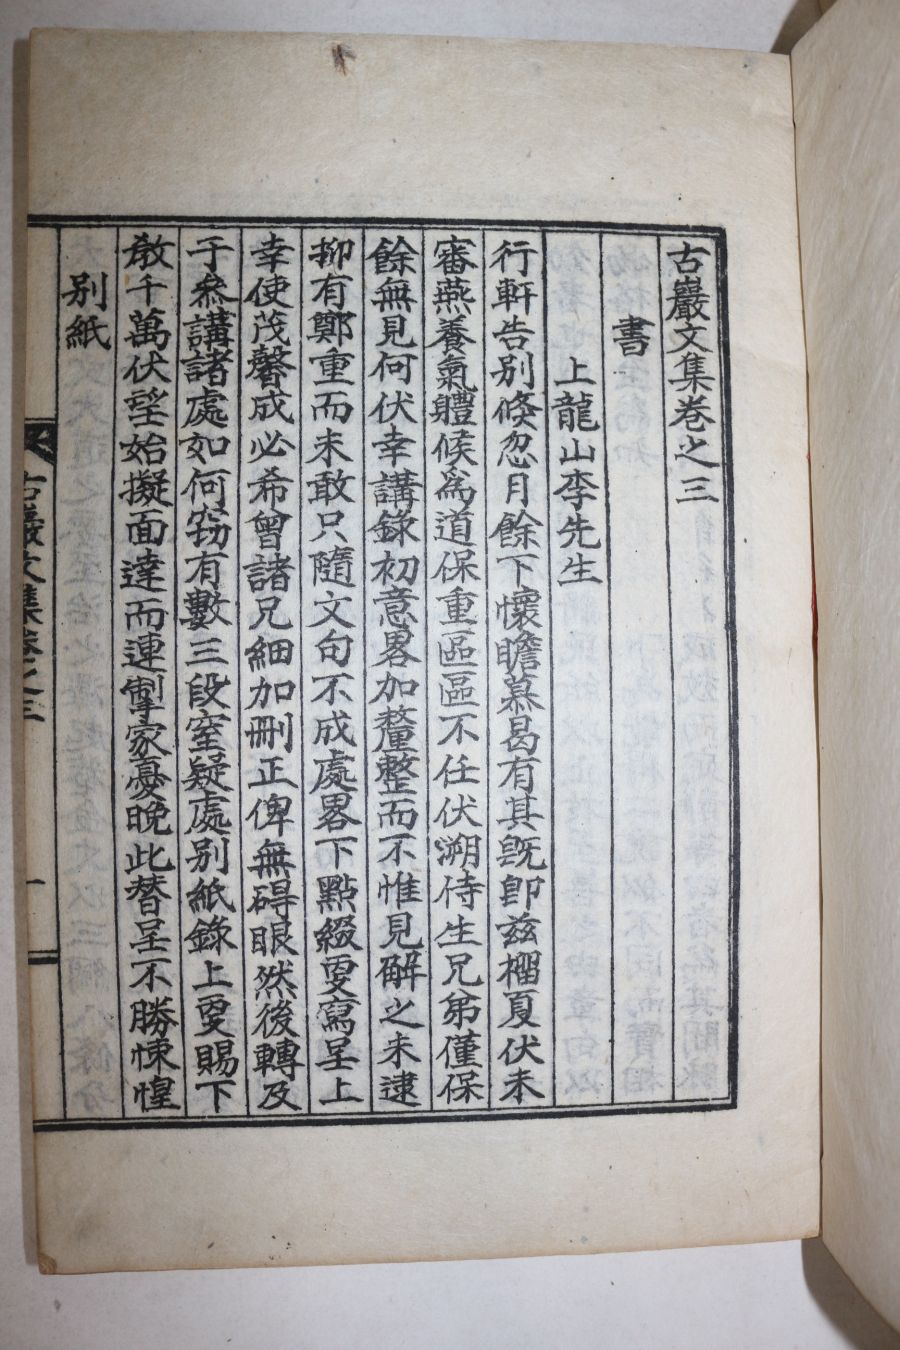 古巖文集卷之三
書
上龍山李先生
行軒告别倐忽月餘下懷瞻慕曷有其旣卽玆榴夏伏未
審燕養氣體候爲道保重區區不任伏溯侍生兄弟僅保
餘無見何伏幸講錄初意畧加釐整而不惟見解之未逮
抑有鄭重而未敢只隨文句不成處畧下點綴更寫呈上
幸使茂聲成必希曾諸兄細加刪正俾無碍眼然後轉及
于叅講諸處如何窃有數三段窒疑處别紙錄上更賜下
敎千萬伏望始擬面達而連掣家憂晩此替呈不勝悚惶
别紙
古巖文集卷之三
一